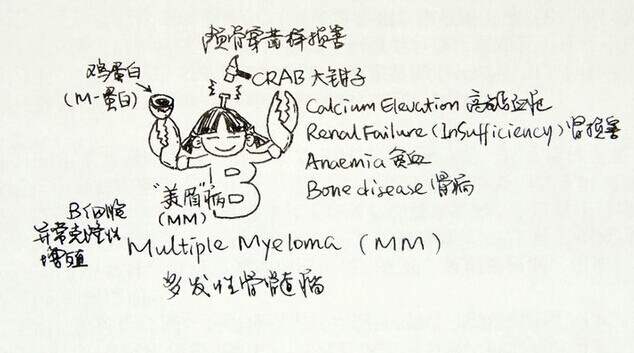 颅骨穿凿样损害
鸡蛋白
(M-蛋白)
CRAB 大钳子
Calcium Elevation 高钙血症
Renal Failure (InSufficiency) 肾损害
Anaemia 贫血
Bone disease 骨病
"美眉"病
(MM)
B
B细胞
异常克隆性
增殖
Multiple Myeloma (MM)
多发性骨髓瘤